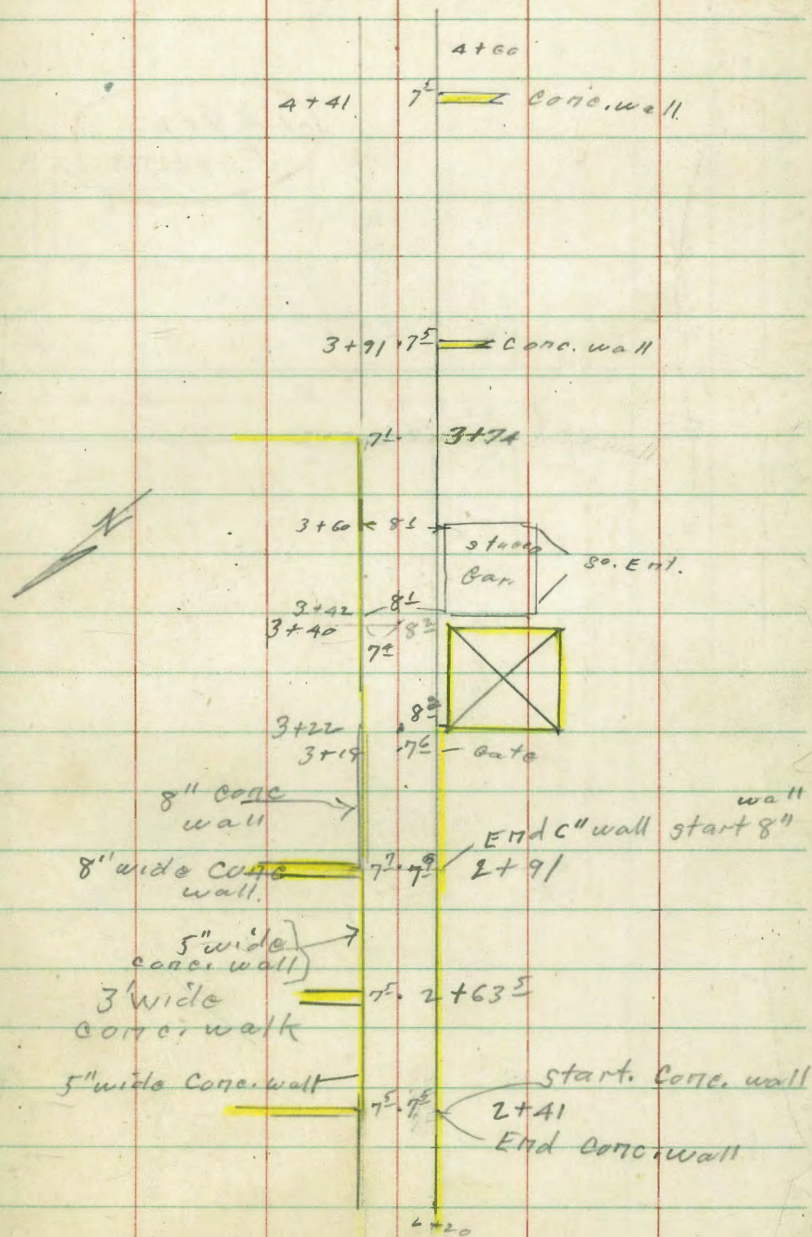 4+60
4+41 7⁵ conc. wall
3+91 7⁵ Conc. wall
7¹ 3+74
3+60 8¹
stucco
Gar.
So. Ent.
3+42 8¹
3+40 8²
7⁴
8²
3+22
3+19 7⁶ Gate
8" conc
wall
wall
End 6" wall start 8"
8" wide Conc
wall.
7⁷ 7⁹ 2+91
5" wide
conc. wall
3' wide
conc. walk
7⁵ 2+63⁵
5" wide Conc. wall
start. Conc. wall
7⁵ 7⁵ 2+41
End conc. wall
2+20